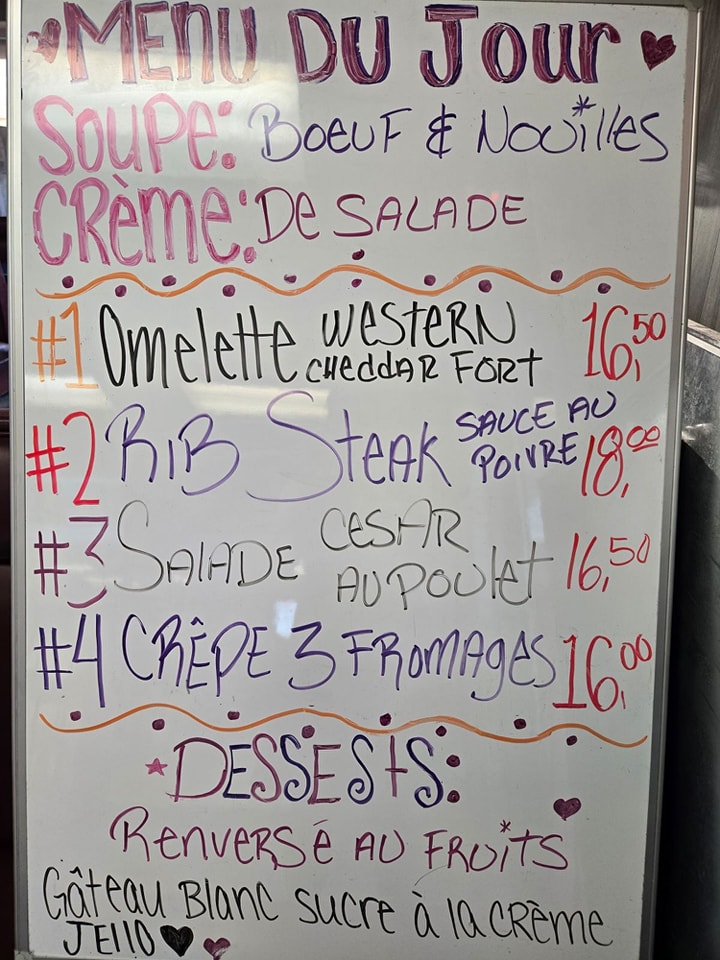 Menu Du Jour
Soupe: Boeuf & Nouilles
Crème: De Salade
#1 Omelette Western Cheddar Fort 16,50
#2 Rib Steak Sauce au Poivre 18,00
#3 Salade Cesar au Poulet 16,50
#4 Crêpe 3 Fromages 16,00
Dessests:
Renversé au Fruits
Gâteau Blanc sucre à la crème
Jello